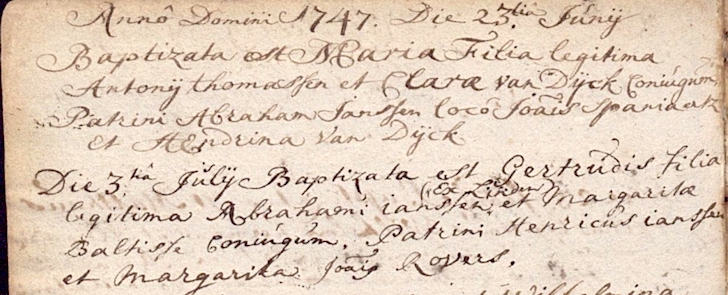 Annô Domini 1747. Die 23tia Junÿ
Baptizata est Maria Filia legitima
Antonÿ thomassen et Claræ van Dÿck Coniugum
Patrini Abraham Janssen locô Joâis Spaniaertz
et Hendrina Van Dÿck
Die 3tia Julÿ Baptizata est Gertrudis Filia
(Ex Linden)
legitima Abrahami ianssen et Margaritæ
Baltisse Coniugum. Patrini Henricus ianssen
et Margarita Joâis Rovers.